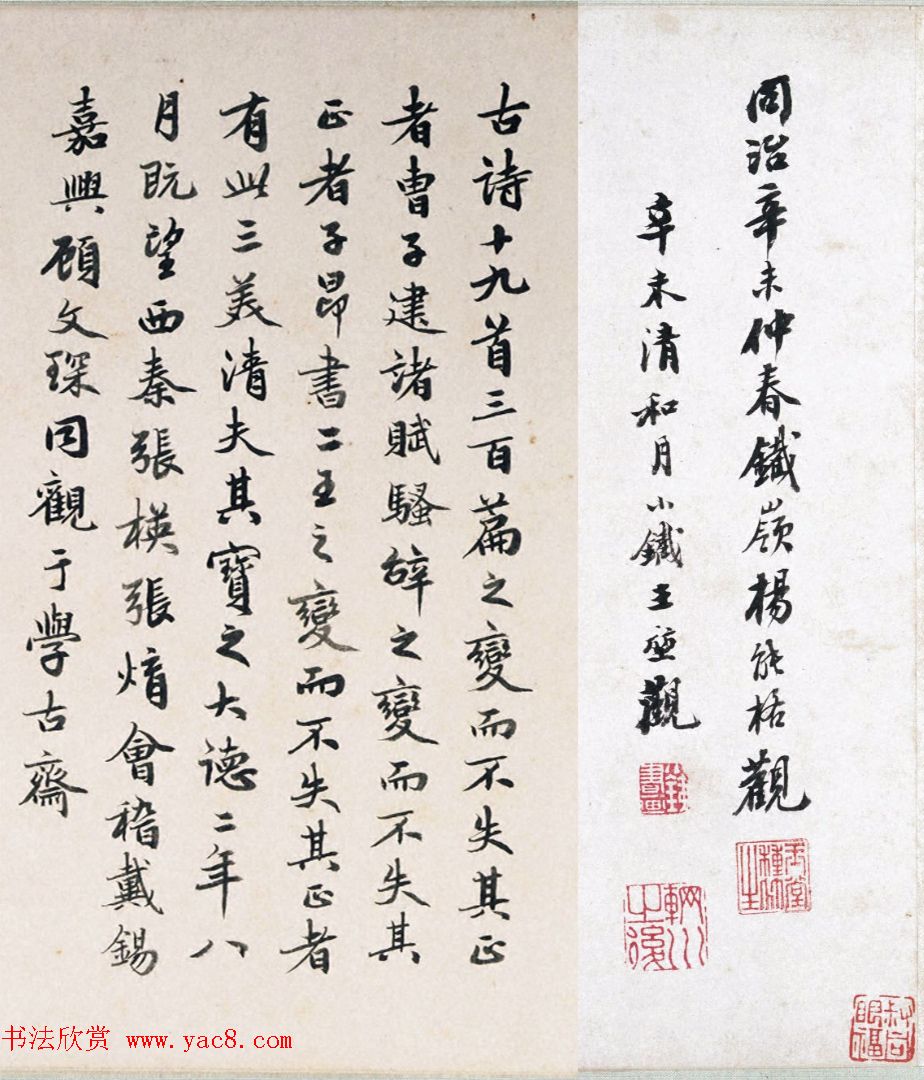 同治辛未仲春鐵嶺楊能格觀
辛未清和月小鐵王
觀
古詩十九首三百篇之變而不失其正
者曹子建諸賦騷辭之變而不失其
正者子昂書二王之變而不失其正者
有此三美清夫其寶之大德二年八
月既望西秦張楧張焴會稽戴錫
嘉興顧文琛同觀于學古齋
輞川
之後
眼福
书法欣赏 www.yac8.com